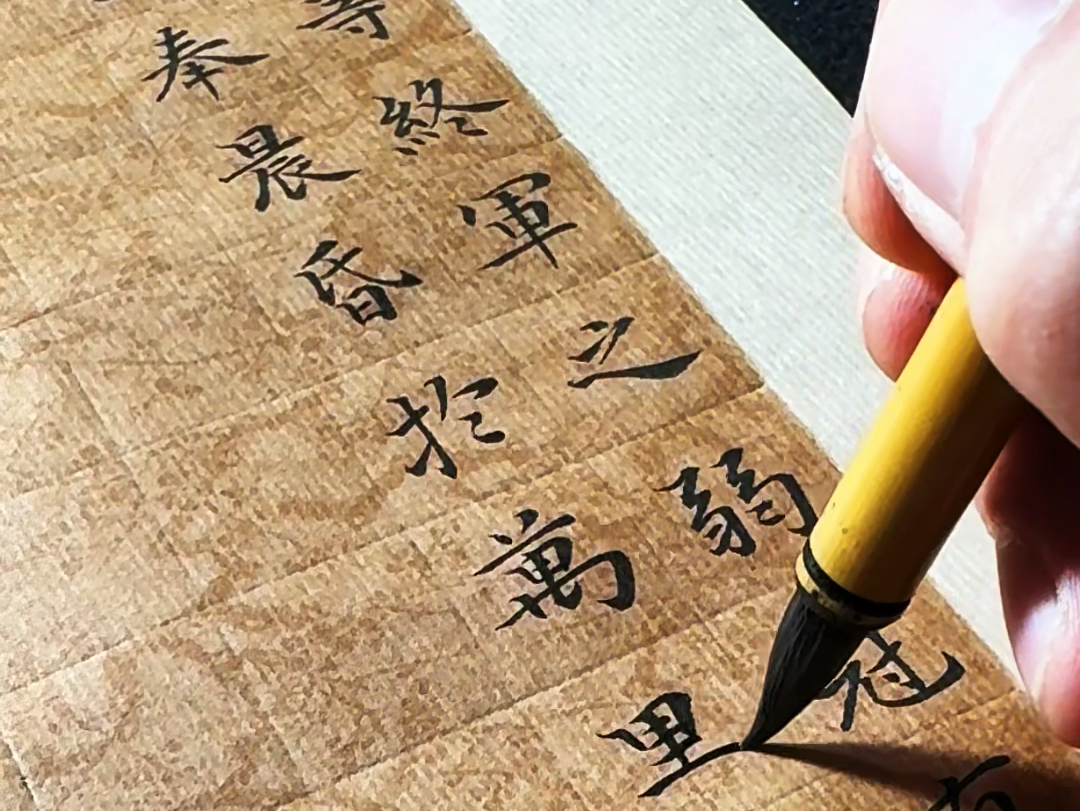 等終軍之弱冠有
奉晨昏扵萬里